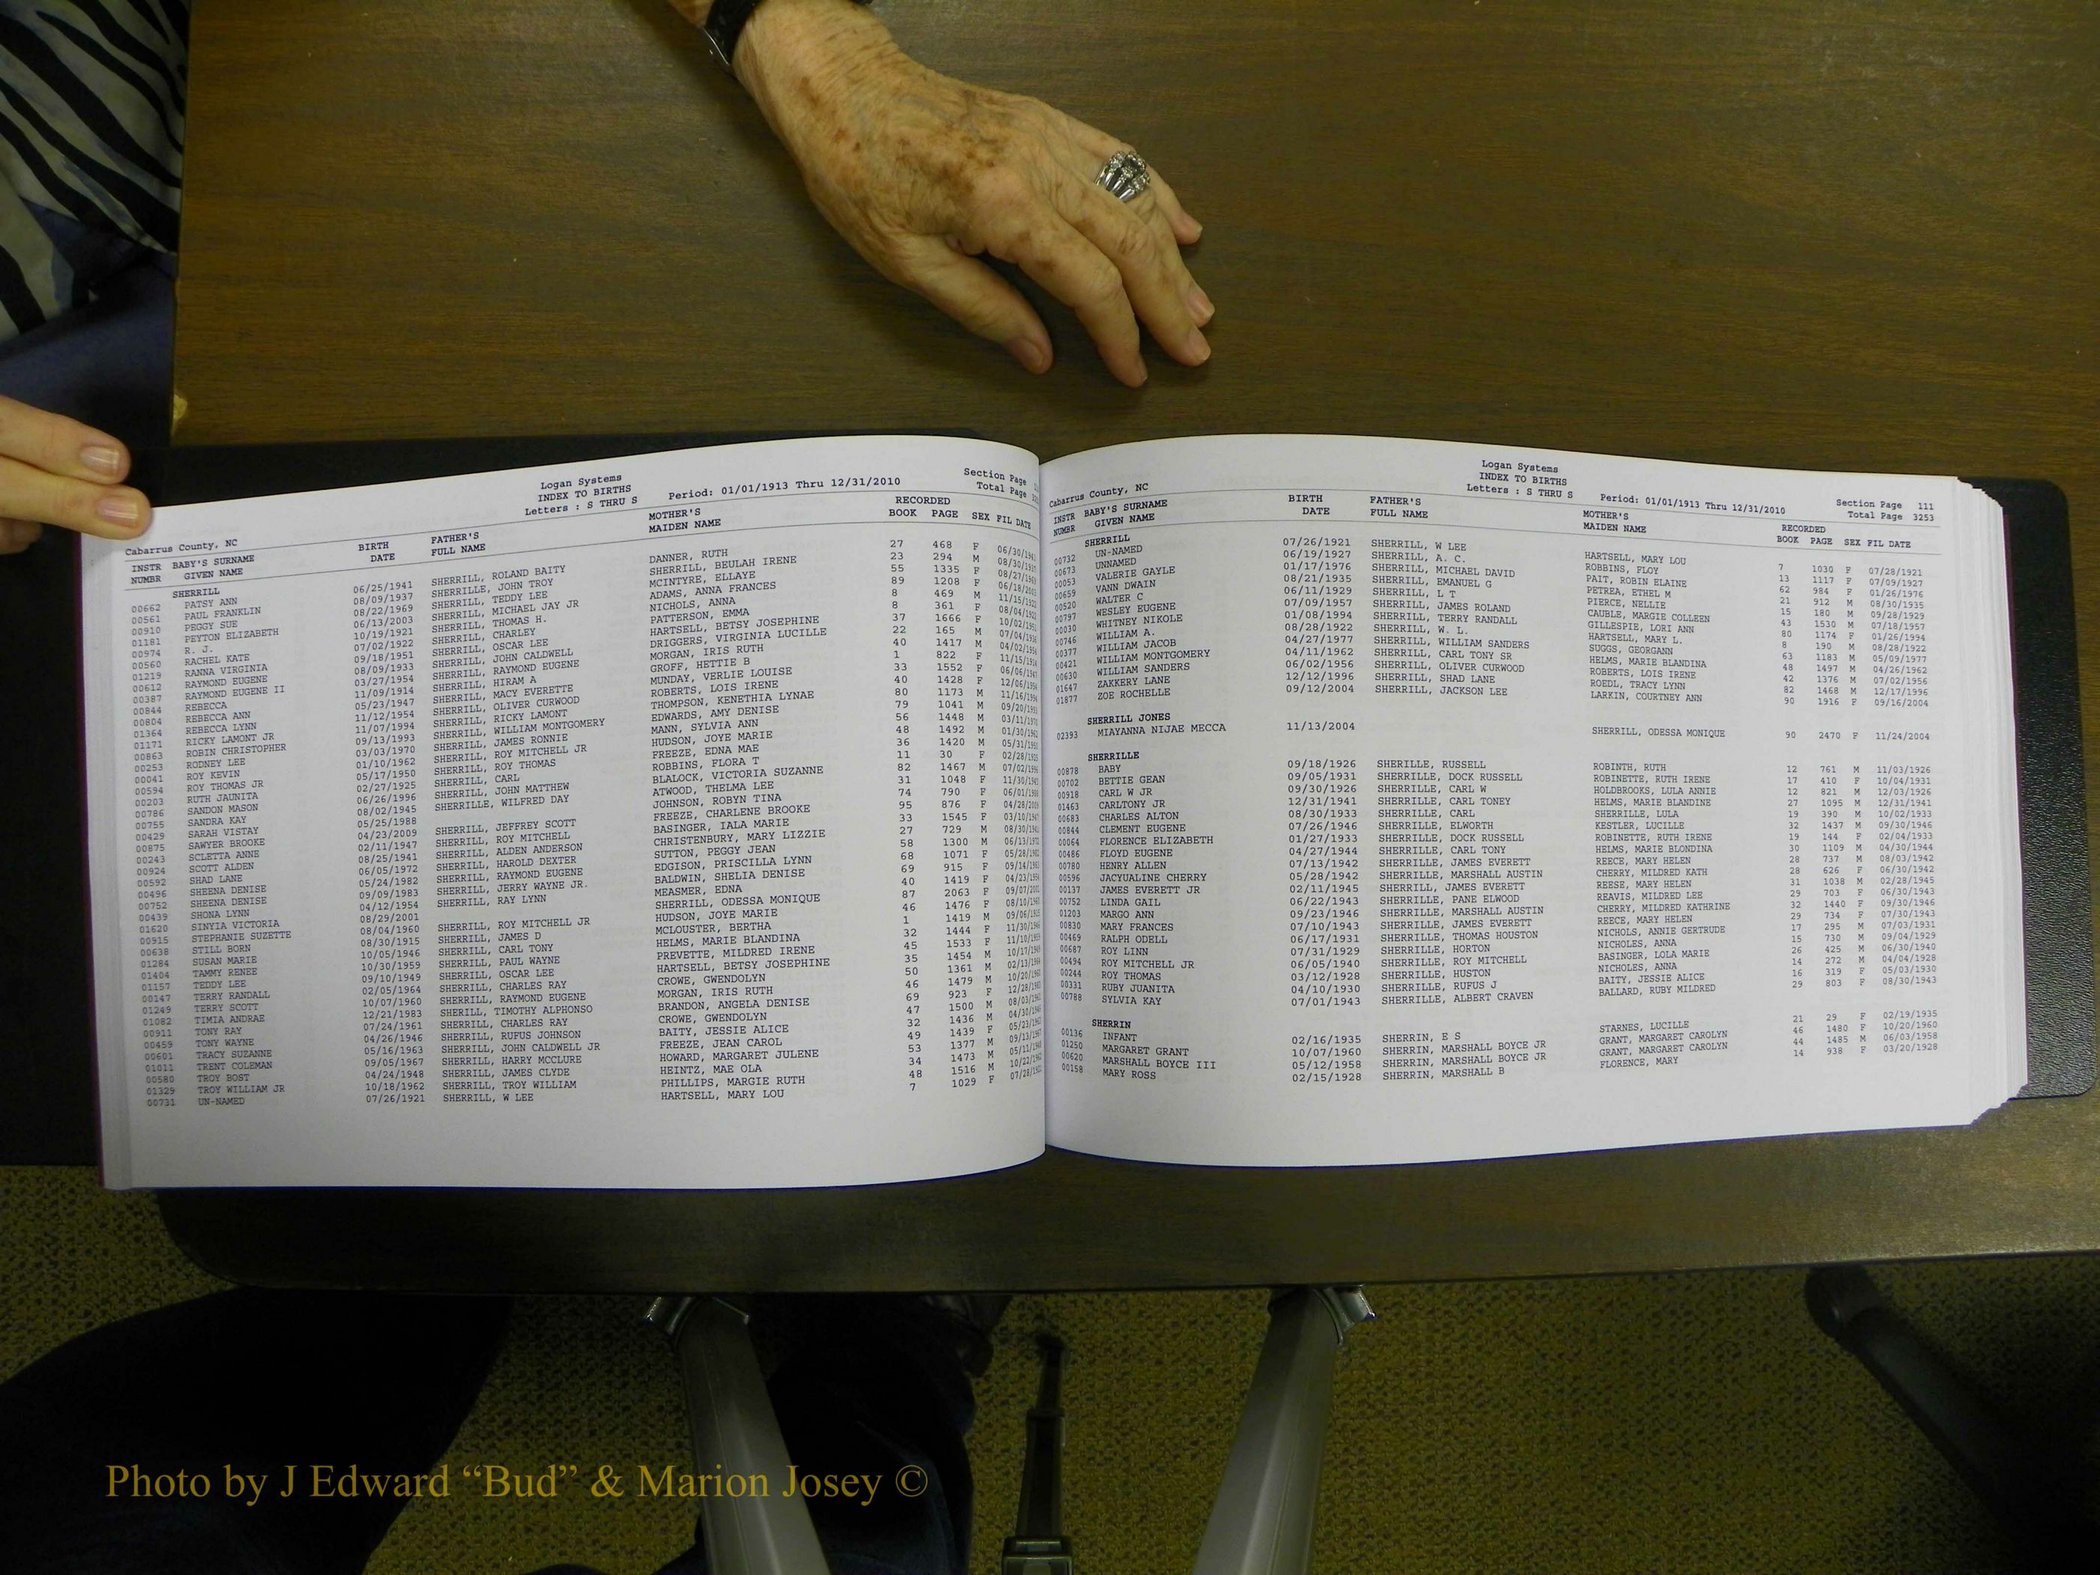 Logan Systems
INDEX TO BIRTHS
Cabarrus County, NC Letters : S THRU S Period: 01/01/1913 Thru 12/31/2010 Section Page
Total Page
INSTR NUMBR BABY'S SURNAME GIVEN NAME BIRTH DATE FATHER'S FULL NAME MOTHER'S MAIDEN NAME RECORDED BOOK PAGE SEX FIL DATE
SHERRILL
00662 PATSY ANN 06/25/1941 SHERRILL, ROLAND BAITY DANNER, RUTH 27 468 F 06/30/1941
00561 PAUL FRANKLIN 08/09/1937 SHERRILLE, JOHN TROY SHERRILL, BEULAH IRENE 23 294 M 08/30/1937
00910 PEGGY SUE 08/22/1969 SHERRILL, TEDDY LEE MCINTYRE, ELLAYE 55 1335 F 08/27/1969
01181 PEYTON ELIZABETH 06/13/2003 SHERRILL, MICHAEL JAY JR ADAMS, ANNA FRANCES 89 1208 F 06/18/2003
00974 R. J. 10/19/1921 SHERRILL, THOMAS H. NICHOLS, ANNA 8 469 M 11/15/1921
00560 RACHEL KATE 07/02/1922 SHERRILL, CHARLEY PATTERSON, EMMA 8 361 F 08/04/1922
01219 RANNA VIRGINIA 09/18/1951 SHERRILL, OSCAR LEE HARTSELL, BETSY JOSEPHINE 37 1666 F 10/02/1951
00612 RAYMOND EUGENE 08/09/1933 SHERRILL, JOHN CALDWELL DRIGGERS, VIRGINIA LUCILLE 22 165 M
00387 RAYMOND EUGENE II 03/27/1954 SHERRILL, RAYMOND EUGENE MORGAN, IRIS RUTH 40 1417 M 04/02/1954
00844 REBECCA 11/09/1914 SHERRILL, HIRAM A GROFF, HETTIE B 1 822 F 11/15/1914
00804 REBECCA ANN 05/23/1947 SHERRILL, MACY EVERETTE MUNDAY, VERLIE LOUISE 33 1552 F 06/06/1947
01364 REBECCA LYNN 11/12/1954 SHERRILL, OLIVER CURWOOD ROBERTS, LOIS IRENE 40 1428 F 12/06/1954
01171 RICKY LAMONT JR 11/07/1994 SHERRILL, RICKY LAMONT THOMPSON, KENETHIA LYNAE 80 1173 M 11/16/1994
00863 ROBIN CHRISTOPHER 09/13/1993 SHERRILL, WILLIAM MONTGOMERY EDWARDS, AMY DENISE 79 1041 M 09/20/1993
00253 RODNEY LEE 03/03/1970 SHERRILL, JAMES RONNIE MANN, SYLVIA ANN 56 1448 M 03/11/1970
00041 ROY KEVIN 01/10/1962 SHERRILL, ROY MITCHELL JR HUDSON, JOYE MARIE 48 1492 M 01/30/1962
00594 ROY THOMAS JR 05/17/1950 SHERRILL, ROY THOMAS FREEZE, EDNA MAE 36 1420 M 05/31/1950
00203 RUTH JAUNITA 02/27/1925 SHERRILL, CARL ROBBINS, FLORA T 11 30 F 02/28/1925
00786 SANDON MASON 06/26/1996 SHERRILL, JOHN MATTHEW BLALOCK, VICTORIA SUZANNE 82 1467 M 07/02/1996
00755 SANDRA KAY 08/02/1945 SHERRILLE, WILFRED DAY ATWOOD, THELMA LEE 31 1048 F 11/30/1945
00429 SARAH VISTAY 05/25/1988 JOHNSON, ROBYN TINA 74 790 F 06/01/1988
00875 SAWYER BROOKE 04/23/2009 SHERRILL, JEFFREY SCOTT FREEZE, CHARLENE BROOKE 95 876 F 04/28/2009
00243 SCLETTA ANNE 02/11/1947 SHERRILL, ROY MITCHELL BASINGER, IALA MARIE 33 1545 F 03/10/1947
00924 SCOTT ALDEN 08/25/1941 SHERRILL, ALDEN ANDERSON CHRISTENBURY, MARY LIZZIE 27 729 M 08/30/1941
00592 SHAD LANE 06/05/1972 SHERRILL, HAROLD DEXTER SUTTON, PEGGY JEAN 58 1300 M 06/13/1972
00496 SHEENA DENISE 05/24/1982 SHERRILL, RAYMOND EUGENE EDGISON, PRISCILLA LYNN 68 1071 F 05/28/1982
00752 SHEENA DENISE 09/09/1983 SHERRILL, JERRY WAYNE JR. BALDWIN, SHELIA DENISE 69 915 F 09/14/1983
00439 SHONA LYNN 04/12/1954 SHERRILL, RAY LYNN MEASMER, EDNA 40 1419 F 04/23/1954
01620 SINYIA VICTORIA 08/29/2001 SHERRILL, ODESSA MONIQUE 87 2063 F 09/07/2001
00915 STEPHANIE SUZETTE 08/04/1960 SHERRILL, ROY MITCHELL JR HUDSON, JOYE MARIE 46 1476 F 08/10/1960
00638 STILL BORN 08/30/1915 SHERRILL, JAMES D MCLOUSTER, BERTHA 1 1419 M 09/06/1915
01284 SUSAN MARIE 10/05/1946 SHERRILL, CARL TONY HELMS, MARIE BLANDINA 32 1444 F 11/30/1946
01404 TAMMY RENEE 10/30/1959 SHERRILL, PAUL WAYNE PREVETTE, MILDRED IRENE 45 1533 F 11/10/1959
01157 TEDDY LEE 09/10/1949 SHERRILL, OSCAR LEE HARTSELL, BETSY JOSEPHINE 35 1454 M 10/17/1949
00147 TERRY RANDALL 02/05/1964 SHERRILL, CHARLES RAY CROWE, GWENDOLYN 50 1361 M 02/13/1964
01249 TERRY SCOTT 10/07/1960 SHERRILL, RAYMOND EUGENE MORGAN, IRIS RUTH 46 1479 M 10/20/1960
01082 TIMIA ANDRAE 12/21/1983 SHERRILL, TIMOTHY ALPHONSO BRANDON, ANGELA DENISE 69 923 F 12/28/1983
00911 TONY RAY 07/24/1961 SHERRILL, CHARLES RAY CROWE, GWENDOLYN 47 1500 M 08/03/1961
00459 TONY WAYNE 04/26/1946 SHERRILL, RUFUS JOHNSON BAITY, JESSIE ALICE 32 1436 M 04/30/1946
00601 TRACY SUZANNE 05/16/1963 SHERRILL, JOHN CALDWELL JR FREEZE, JEAN CAROL 49 1439 F 05/23/1963
01011 TRENT COLEMAN 09/05/1967 SHERRILL, HARRY MCCLURE HOWARD, MARGARET JULENE 53 1377 M 09/13/1967
00580 TROY BOST 04/24/1948 SHERRILL, JAMES CLYDE HEINTZ, MAE OLA 34 1473 M 05/11/1948
01329 TROY WILLIAM JR 10/18/1962 SHERRILL, TROY WILLIAM PHILLIPS, MARGIE RUTH 48 1516 M 10/22/1962
00731 UN-NAMED 07/26/1921 SHERRILL, W LEE HARTSELL, MARY LOU 7 1029 F 07/28/1921
Logan Systems
INDEX TO BIRTHS
Cabarrus County, NC Letters : S THRU S Period: 01/01/1913 Thru 12/31/2010 Section Page 111
Total Page 3253
INSTR NUMBR BABY'S SURNAME GIVEN NAME BIRTH DATE FATHER'S FULL NAME MOTHER'S MAIDEN NAME RECORDED BOOK PAGE SEX FIL DATE
SHERRILL
00732 UN-NAMED 07/26/1921 SHERRILL, W LEE HARTSELL, MARY LOU 7 1030 F 07/28/1921
00673 UNNAMED 06/19/1927 SHERRILL, A. C. ROBBINS, FLOY 13 1117 F 07/09/1927
00053 VALERIE GAYLE 01/17/1976 SHERRILL, MICHAEL DAVID PAIT, ROBIN ELAINE 62 984 F 01/26/1976
00659 VANN DWAIN 08/21/1935 SHERRILL, EMANUEL G PETREA, ETHEL M 21 912 M 08/30/1935
00520 WALTER C 06/11/1929 SHERRILL, L T PIERCE, NELLIE 15 180 M 09/28/1929
00797 WESLEY EUGENE 07/09/1957 SHERRILL, JAMES ROLAND CAUBLE, MARGIE COLLEEN 43 1530 M 07/18/1957
00030 WHITNEY NIKOLE 01/08/1994 SHERRILL, TERRY RANDALL GILLESPIE, LORI ANN 80 1174 F 01/26/1994
00746 WILLIAM A. 08/28/1922 SHERRILL, W. L. HARTSELL, MARY L. 8 190 M 08/28/1922
00377 WILLIAM JACOB 04/27/1977 SHERRILL, WILLIAM SANDERS SUGGS, GEORGANN 63 1183 M 05/09/1977
00421 WILLIAM MONTGOMERY 04/11/1962 SHERRILL, CARL TONY SR HELMS, MARIE BLANDINA 48 1497 M 04/26/1962
00630 WILLIAM SANDERS 06/02/1956 SHERRILL, OLIVER CURWOOD ROBERTS, LOIS IRENE 42 1376 M 07/02/1956
01647 ZAKKERY LANE 12/12/1996 SHERRILL, SHAD LANE ROEDL, TRACY LYNN 82 1468 M 12/17/1996
01877 ZOE ROCHELLE 09/12/2004 SHERRILL, JACKSON LEE LARKIN, COURTNEY ANN 90 1916 F 09/16/2004
SHERRILL JONES
02393 MIAYANNA NIJAE MECCA 11/13/2004 SHERRILL, ODESSA MONIQUE 90 2470 F 11/24/2004
SHERRILLE
00878 BABY 09/18/1926 SHERILLE, RUSSELL ROBINTH, RUTH 12 761 M 11/03/1926
00702 BETTIE GEAN 09/05/1931 SHERILLE, DOCK RUSSELL ROBINETTE, RUTH IRENE 17 410 F 10/04/1931
00918 CARL W JR 09/30/1926 SHERILLE, CARL W HOLDBROOKS, LULA ANNIE 12 821 M 12/03/1926
01463 CARLTONY JR 12/31/1941 SHERRILLE, CARL TONEY HELMS, MARIE BLANDINE 27 1095 M 12/31/1941
00683 CHARLES ALTON 08/30/1933 SHERRILLE, CARL SHERRILLE, LULA 19 390 M 10/02/1933
00844 CLEMENT EUGENE 07/26/1946 SHERRILLE, ELWORTH KESTLER, LUCILLE 32 1437 M 09/30/1946
00064 FLORENCE ELIZABETH 01/27/1933 SHERRILLE, DOCK RUSSELL ROBINETTE, RUTH IRENE 19 144 F 02/04/1933
00486 FLOYD EUGENE 04/27/1944 SHERRILLE, CARL TONY HELMS, MARIE BLONDINA 30 1109 M 04/30/1944
00780 HENRY ALLEN 07/13/1942 SHERRILLE, JAMES EVERETT REECE, MARY HELEN 28 737 M 08/03/1942
00596 JACYUALINE CHERRY 05/28/1942 SHERRILLE, MARSHALL AUSTIN CHERRY, MILDRED KATH 28 626 F 06/30/1942
00137 JAMES EVERETT JR 02/11/1945 SHERRILL, JAMES EVERETT REESE, MARY HELEN 31 1038 M 02/28/1945
00752 LINDA GAIL 06/22/1943 SHERRILLE, PANE ELWOOD REAVIS, MILDRED LEE 29 703 F 06/30/1943
01203 MARGO ANN 09/23/1946 SHERRILLE, MARSHALL AUSTIN CHERRY, MILDRED KATHRINE 32 1440 F 09/30/1946
00830 MARY FRANCES 07/10/1943 SHERRILLE, JAMES EVERETT REECE, MARY HELEN 29 734 F 07/30/1943
00469 RALPH ODELL 06/17/1931 SHERRILLE, THOMAS HOUSTON NICHOLS, ANNIE GERTRUDE 17 295 M 07/03/1931
00687 ROY LINN 07/31/1929 SHERRILLE, HORTON NICHOLES, ANNA 15 730 M 09/04/1929
00494 ROY MITCHELL JR 06/05/1940 SHERRILLE, ROY MITCHELL BASINGER, LOLA MARIE 26 425 M 06/30/1940
00244 ROY THOMAS 03/12/1928 SHERRILLE, HUSTON NICHOLES, ANNA 14 272 M 04/04/1928
00331 RUBY JUANITA 04/10/1930 SHERRILLE, RUFUS J BAITY, JESSIE ALICE 16 319 F 05/03/1930
00788 SYLVIA KAY 07/01/1943 SHERRILLE, ALBERT CRAVEN BALLARD, RUBY MILDRED 29 803 F 08/30/1943
SHERRIN
00136 INFANT 02/16/1935 SHERRIN, E S STARNES, LUCILLE 21 29 F 02/19/1935
01250 MARGARET GRANT 10/07/1960 SHERRIN, MARSHALL BOYCE JR GRANT, MARGARET CAROLYN 46 1480 F 10/20/1960
00620 MARSHALL BOYCE III 05/12/1958 SHERRIN, MARSHALL BOYCE JR GRANT, MARGARET CAROLYN 44 1485 M 06/03/1958
00158 MARY ROSS 02/15/1928 SHERRIN, MARSHALL B FLORENCE, MARY 14 938 F 03/20/1928
Photo by J Edward “Bud” & Marion Josey ©